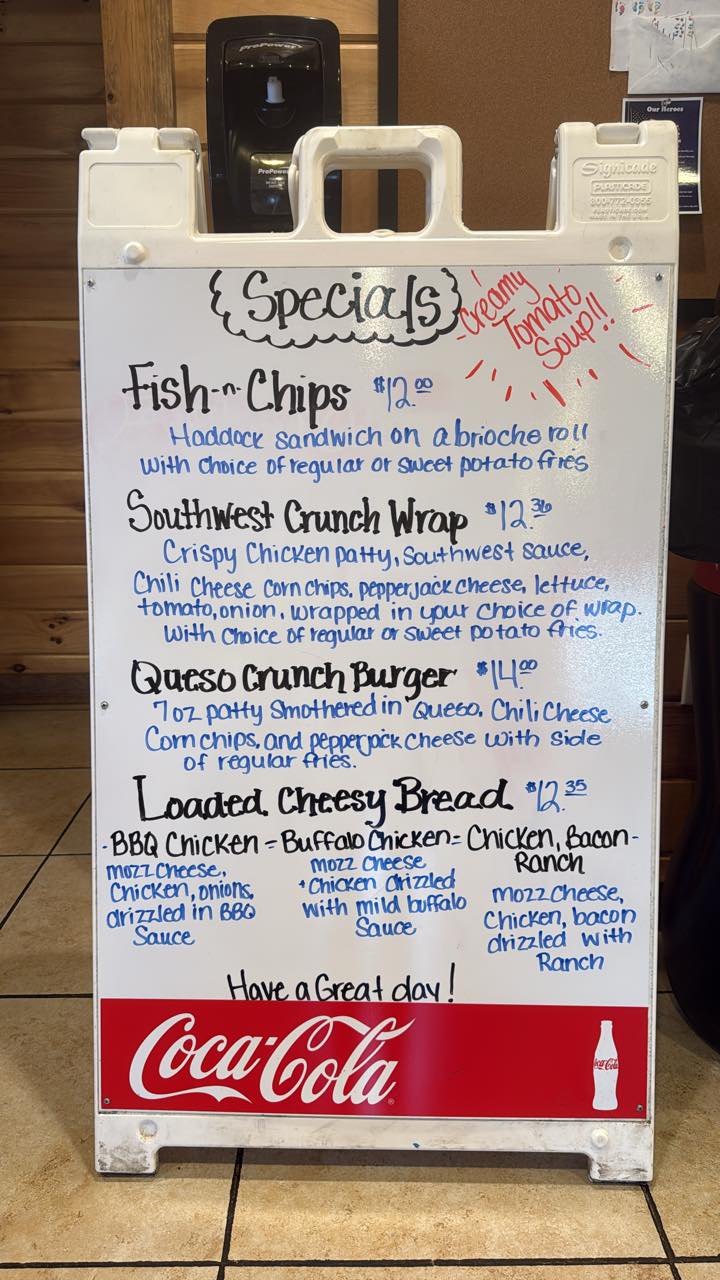 ProPower
ProPower
Our Heroes
Signicade
PLASTICADE
800-772-0355
Specials
Creamy
Tomato
Soup!!
Fish-n-Chips $12.00
Haddock sandwich on a brioche roll
with choice of regular or sweet potato fries
Southwest Crunch Wrap $12.36
Crispy Chicken patty, Southwest sauce,
Chili Cheese Corn chips, pepperjack cheese, lettuce,
tomato, onion, wrapped in your choice of wrap.
with choice of regular or sweet potato fries.
Queso Crunch Burger $14.00
7oz patty smothered in Queso, Chili Cheese
Corn chips, and pepperjack cheese with side
of regular fries.
Loaded Cheesy Bread $12.35
-BBQ Chicken = Buffalo Chicken = Chicken, Bacon-
Ranch
mozz cheese,
Chicken, onions,
drizzled in BBQ
Sauce
mozz cheese
+ Chicken drizzled
with mild buffalo
Sauce
mozz cheese,
Chicken, bacon
drizzled with
Ranch
Have a Great day!
Coca-Cola
Coca-Cola